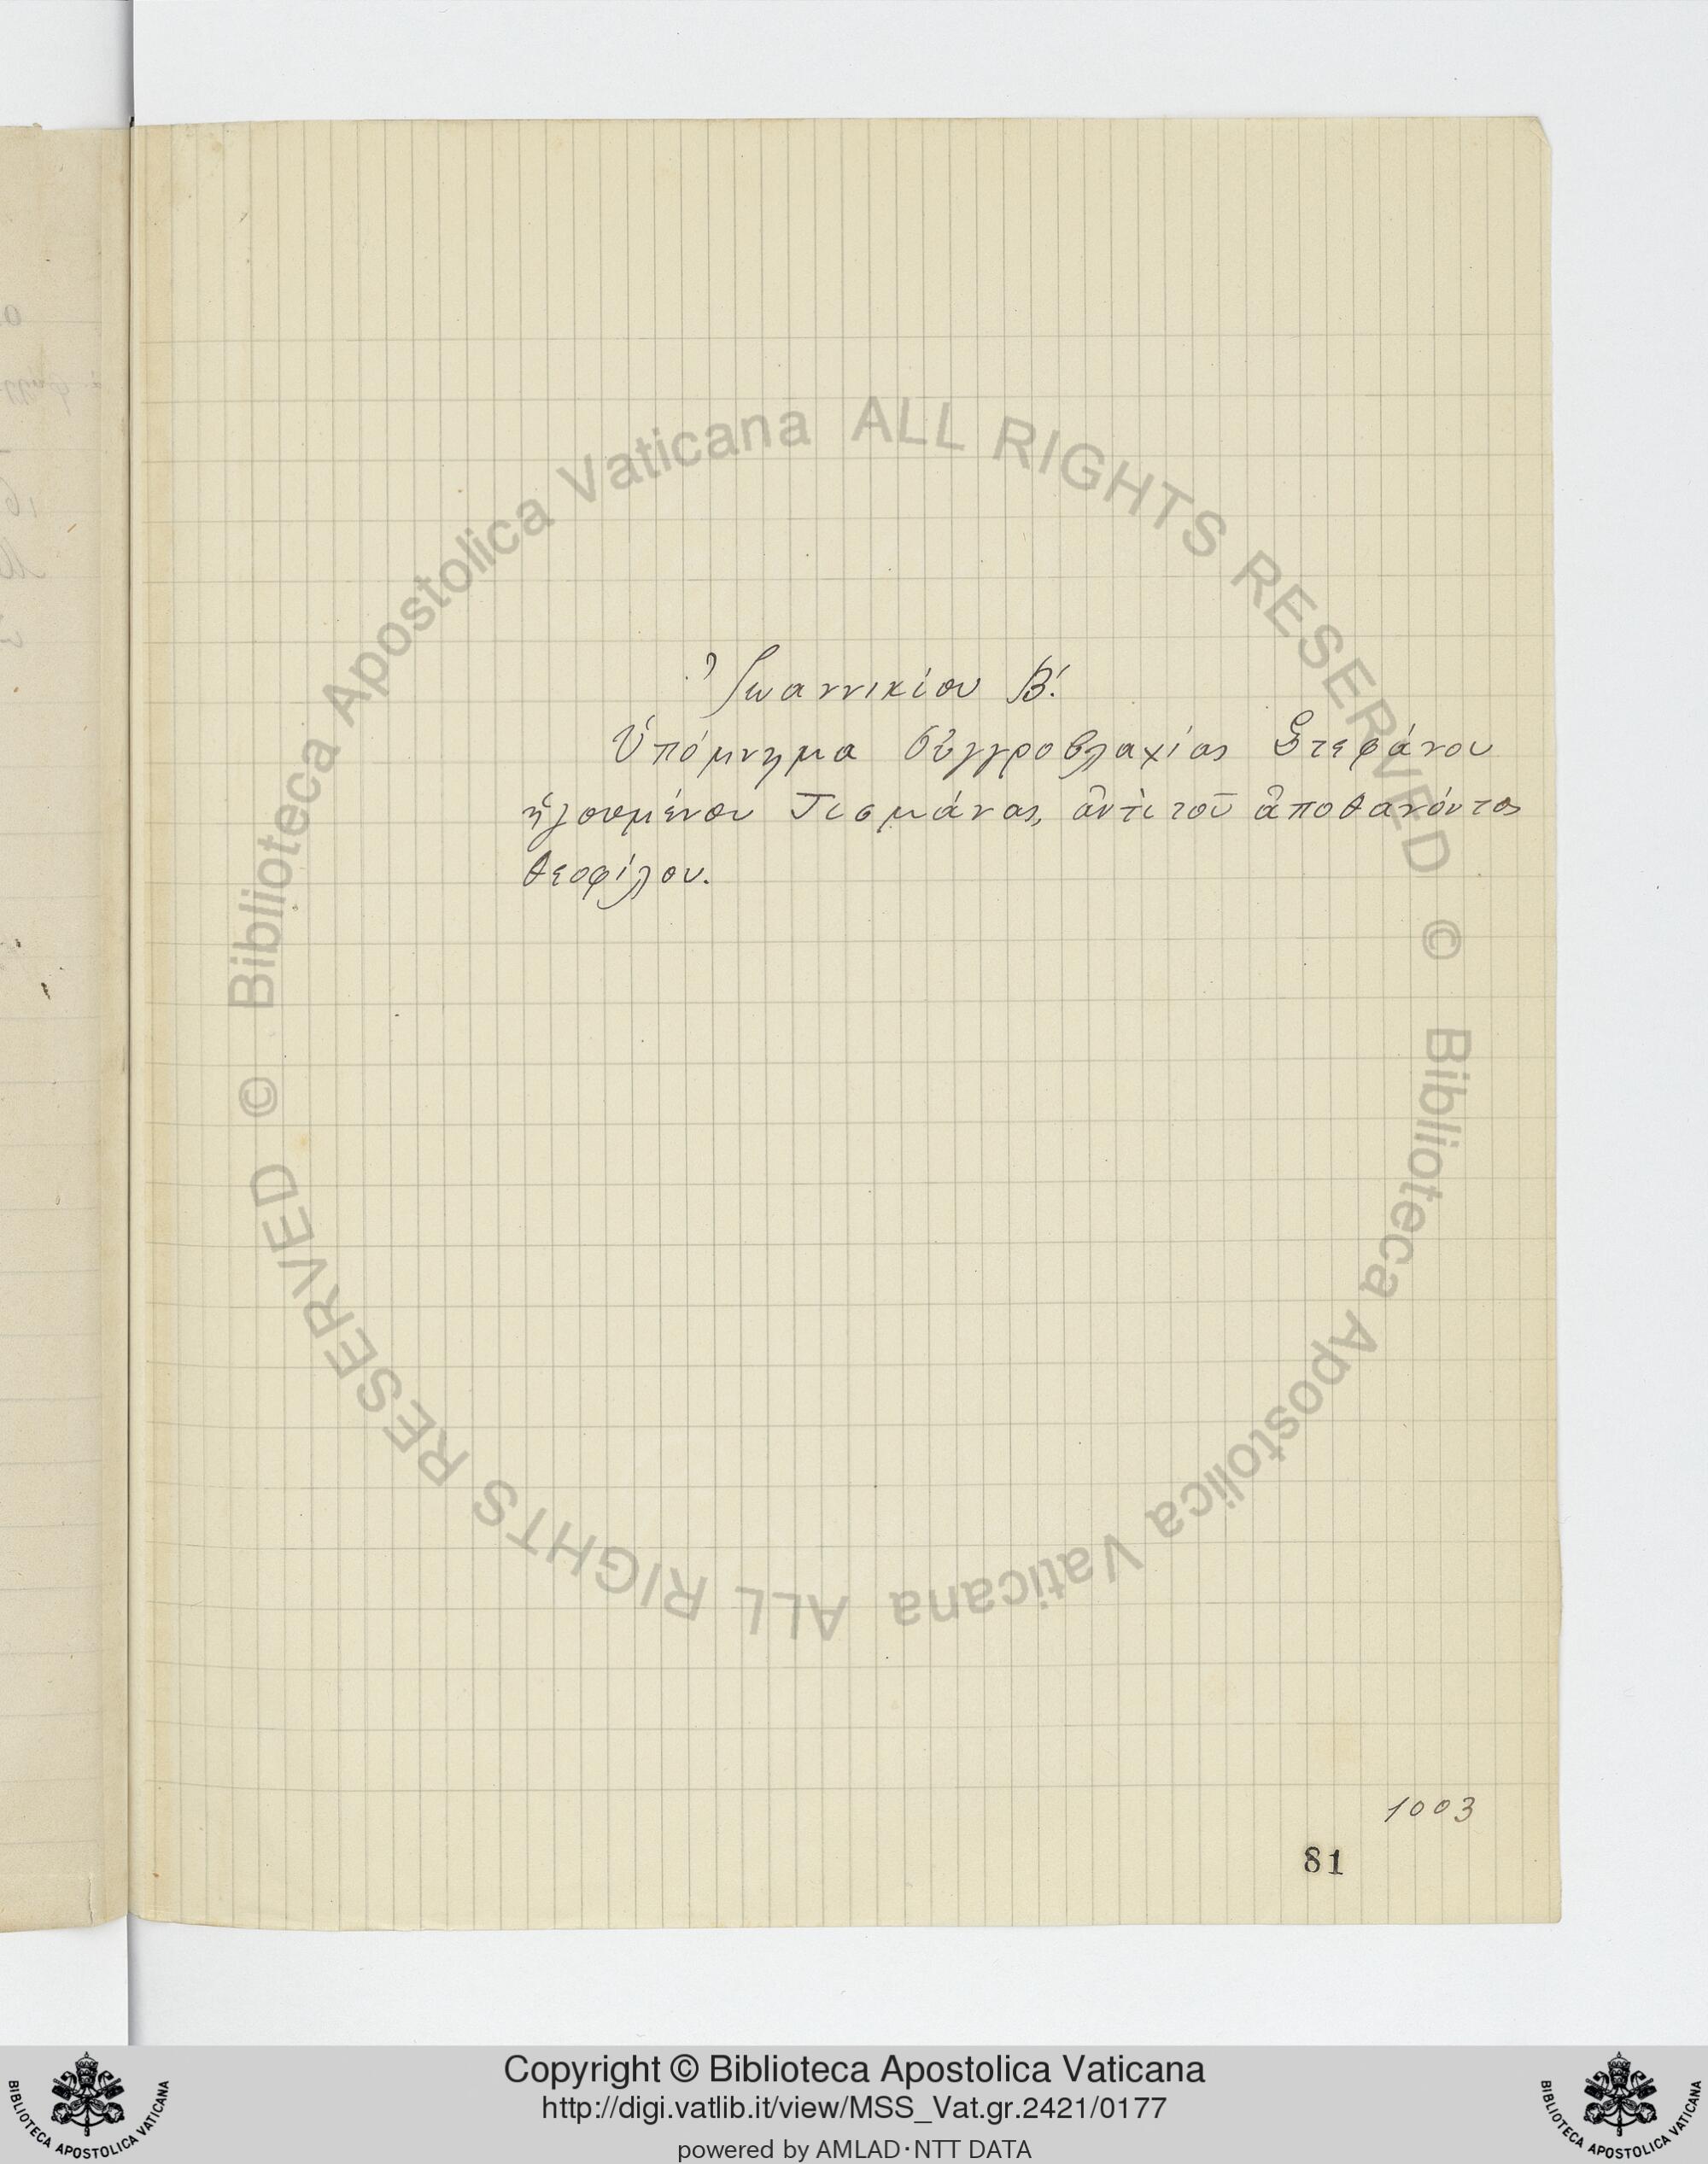 Ἰωαννικίου Β΄.
Ὑπόμνημα Οὐγγροβλαχίας Στεφάνου
ἡγουμένου Τισμάνας, ἀντὶ τοῦ ἀποθανόντος
Θεοφίλου.
1003
81
© Biblioteca Apostolica Vaticana ALL RIGHTS RESERVED
© Biblioteca Apostolica Vaticana ALL RIGHTS RESERVED
Copyright © Biblioteca Apostolica Vaticana
http://digi.vatlib.it/view/MSS_Vat.gr.2421/0177
powered by AMLAD·NTT DATA
BIBLIOTECA APOSTOLICA VATICANA
BIBLIOTECA APOSTOLICA VATICANA